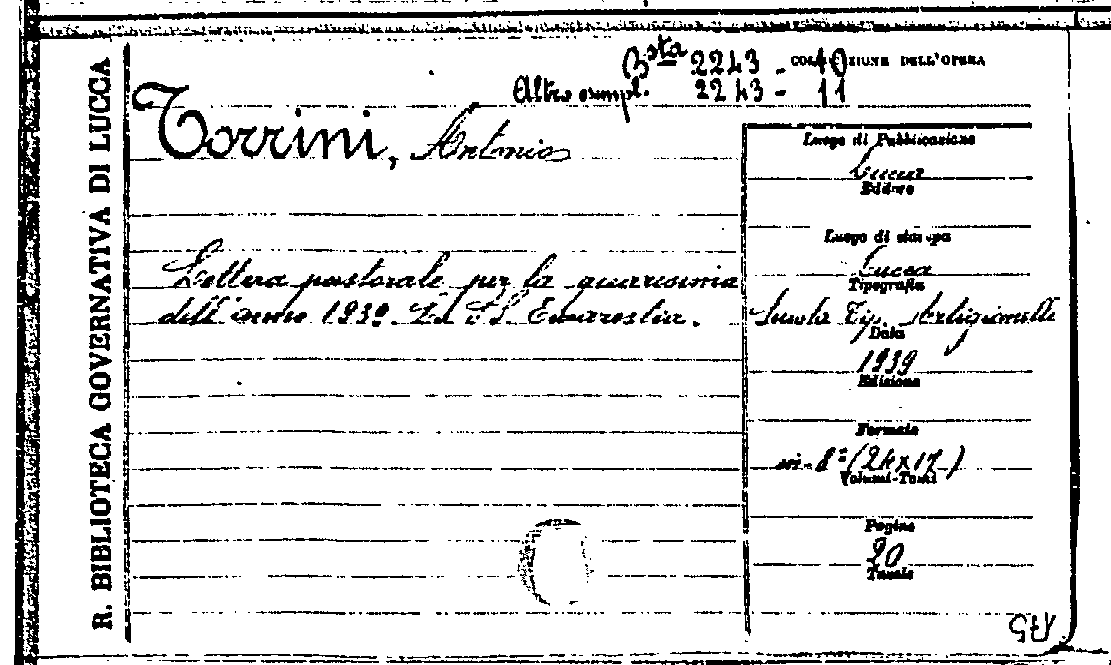 R. BIBLIOTECA GOVERNATIVA DI LUCCA
Bsta 2243 - 10
COLLOCAZIONE DELL'OPERA
Altro esempl. 2243 - 11
Torrini, Antonio
Lettera pastorale per la quaresima
dell'anno 1939. La SS. Eucarestia.
Luogo di Pubblicazione
Lucca
Editore
Luogo di stampa
Lucca
Tipografia
Scuola Tip. Artigianelli
Data
1939
Edizione
Formato
in-8º (24x17)
Volumi-Tomi
Pagine
20
Tavole
175